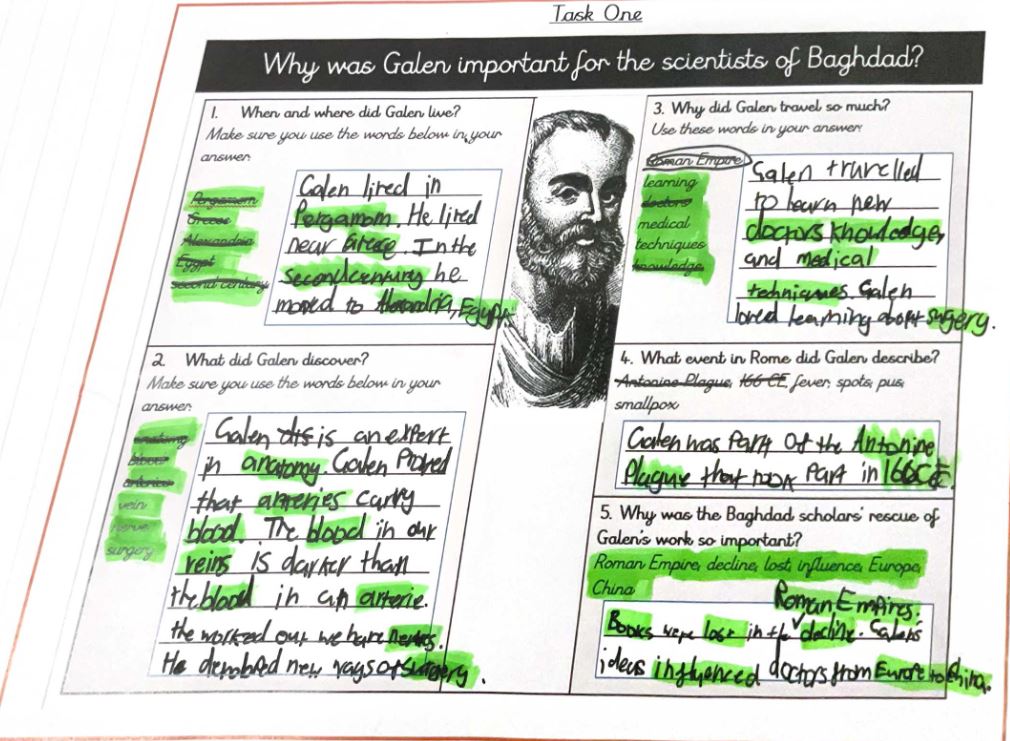 Task One
Why was Galen important for the scientists of Baghdad?
1. When and where did Galen live?
Make sure you use the words below in your
answer:
Pergamom
Greece
Alexandria
Egypt
second century
Galen lived in
Pergamom. He lived
near Greece. In the
second century he
moved to Alexandria, Egypt.
2. What did Galen discover?
Make sure you use the words below in your
answer:
anatomy
blood
arteries
vein
nerve
surgery
Galen dis is an expert
in anatomy. Galen Proved
that arteries carry
blood. The blood in our
veins is darker than
the blood in an arterie.
He worked out we have nerves.
He new ways of surgery.
3. Why did Galen travel so much?
Use these words in your answer:
Roman Empire
learning
doctors
medical
techniques
knowledge
Galen travelled
to learn new
doctors knowledge,
and medical
techniques. Galen
loved learning about sugery.
4. What event in Rome did Galen describe?
Antonine Plague, 166 CE, fever, spots, pus,
smallpox
Galen was Part of the Antonine
Plague that took Part in 166CE.
5. Why was the Baghdad scholars' rescue of
Galen's work so important?
Roman Empire, decline, lost, influence, Europe,
China
Roman Empires.
Books were lost in the decline. Galens
ideas influenced doctors from Europe to China.